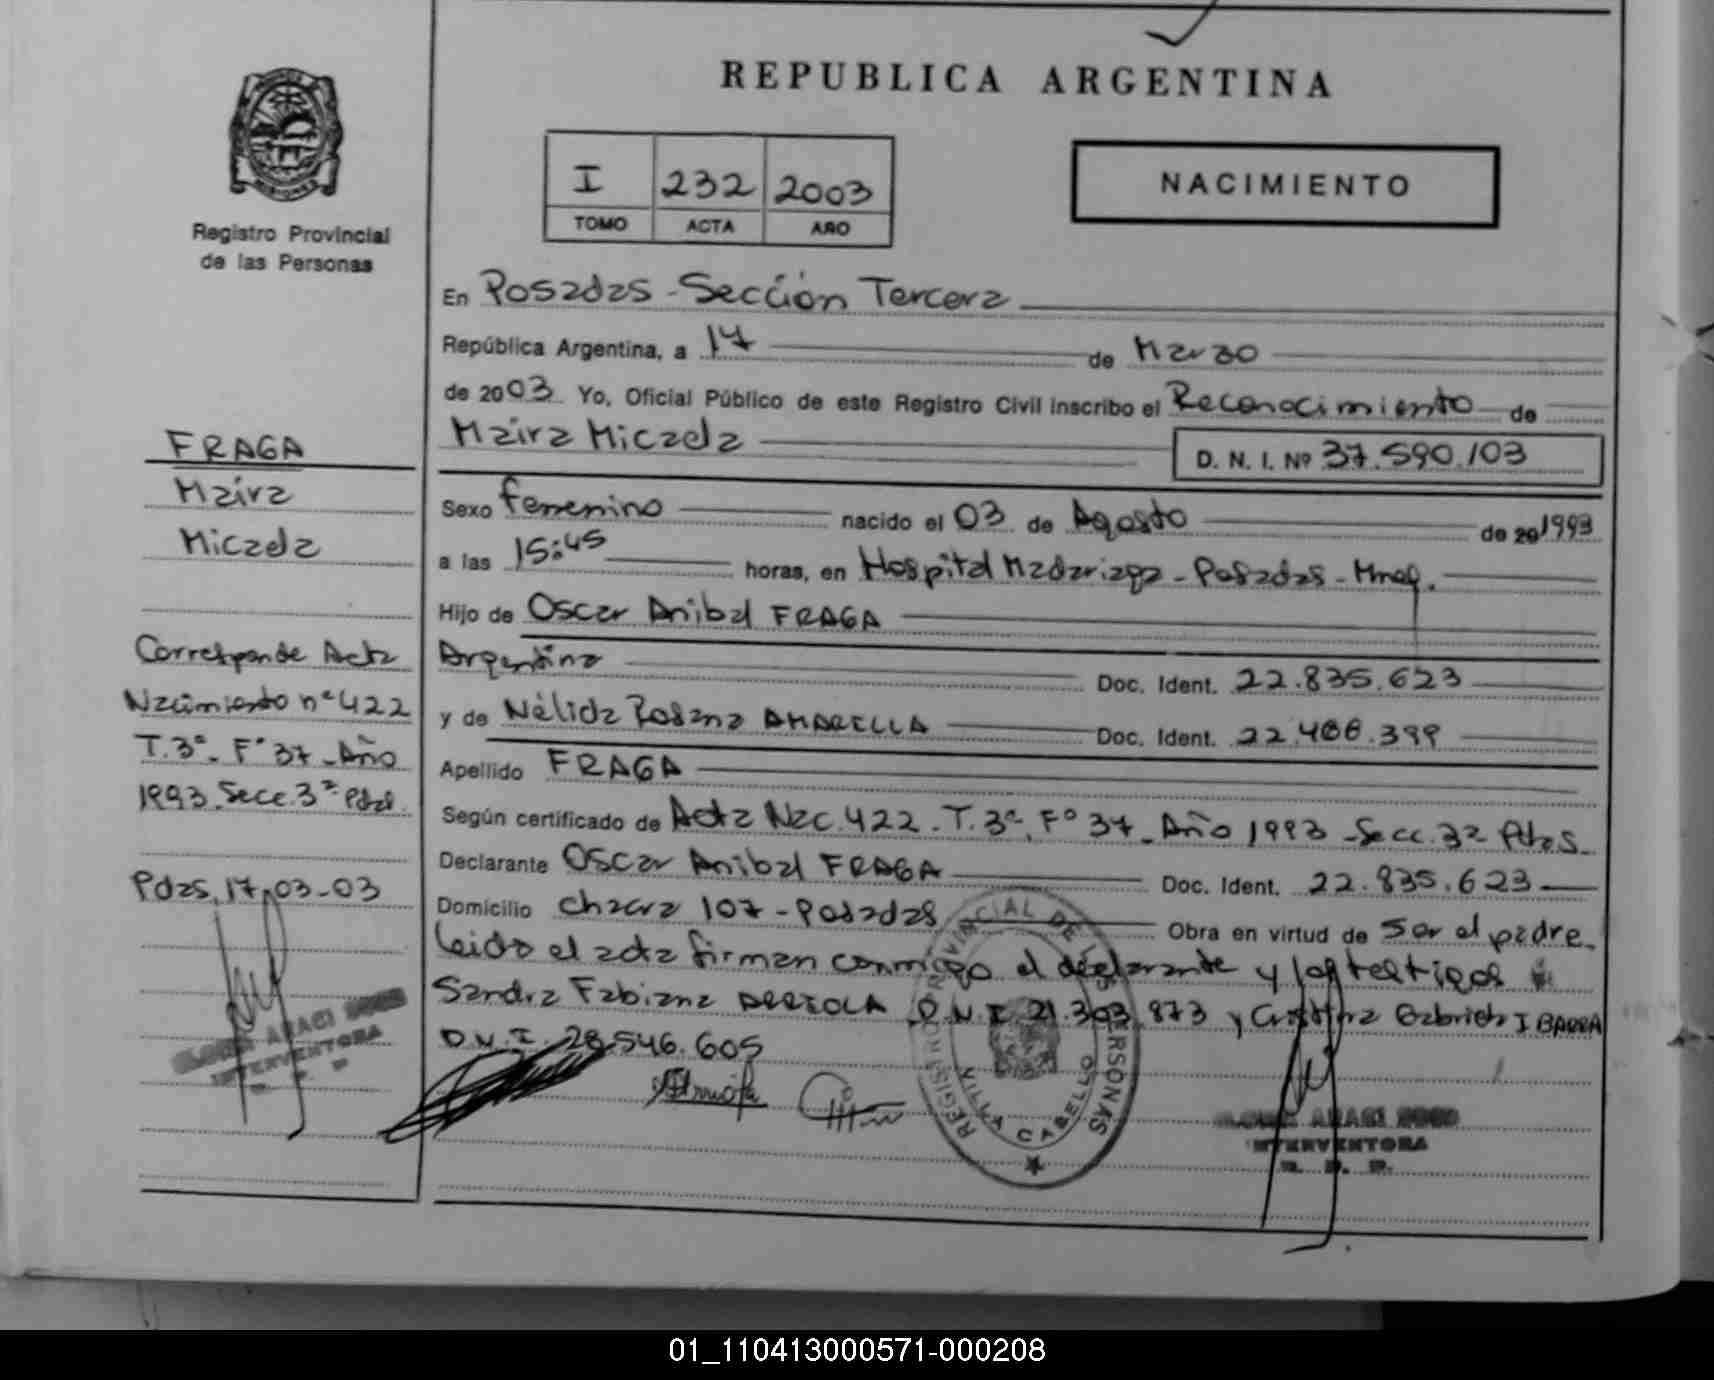 REPUBLICA ARGENTINA
I 232 2003
TOMO ACTA AÑO
NACIMIENTO
Registro Provincial
de las Personas
En Posadas - Sección Tercera
República Argentina, a 17 de Marzo
de 2003 Yo, Oficial Público de este Registro Civil inscribo el Reconocimiento de
Maira Micaela D. N. I. Nº 37.590.103
Sexo femenino nacido el 03 de Agosto de 20 1993
a las 15:45 horas, en Hospital Madariaga - Posadas - Mnes.
Hijo de Oscar Anibal FRAGA
Argentino Doc. Ident. 22.835.623
y de Nélida Rosana AMARELLA Doc. Ident.
Apellido FRAGA
Según certificado de Acta Nac. 422 - T. 3º, Fº 37 - Año 1993 - Secc. 3ª Pdas.
Declarante Oscar Anibal FRAGA Doc. Ident. 22.835.623
Domicilio chacra 107 - Posadas Obra en virtud de ser el padre.
Leido el acta firman conmigo el declarante y los testigos
Sandra Fabiana ARREOLA D.N.I. 21.303.873 y Cristina Gabriela IBARRA
D.N.I. 28.546.605
FRAGA
Maira
Micaela
Corresponde Acta
Nacimiento nº 422
T. 3º - Fº 37 - Año
1993. Secc. 3ª Pdas.
Pdas, 17-03-03
ARACI
INTERVENTORA
REGISTRO PROVINCIAL DE LAS PERSONAS
VILLA CABELLO
ARACI
INTERVENTORA
R. P. P.
01_110413000571-000208